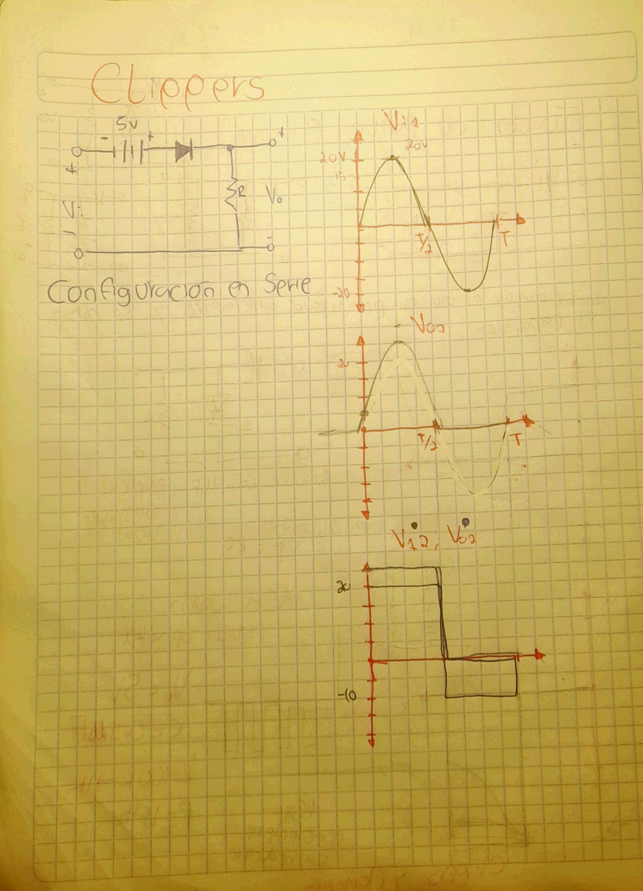 Clippers
5v
- +
+ +
R
Vi Vo
- -
Configuracion en Serie
Vi1
20V
20V
T/2 T
-20
Vo1
20
T/2 T
Vi2, Vo2
20
-10